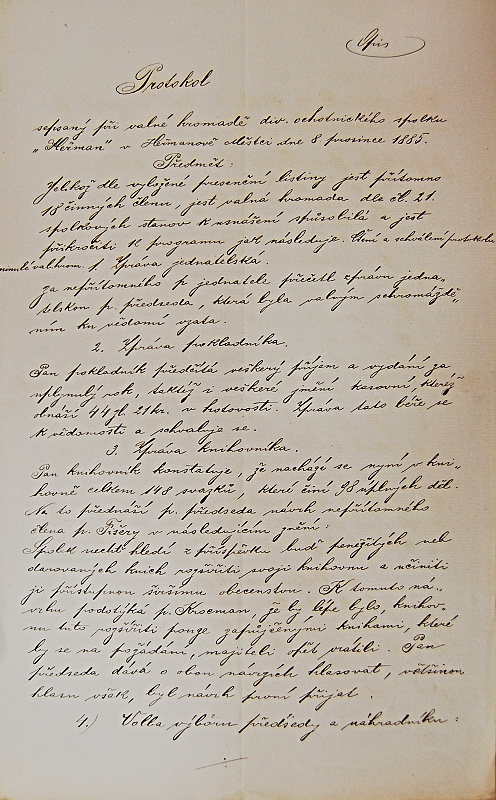 Opis
Protokol
sepsaný při valné hromadě div. ochotnického spolku
„Heřman" v Heřmanově Městci dne 8 prosince 1885.
Předmět:
Jelikož dle vyložené presenční listiny jest přítomno
18 činných členu, jest valná hromada dle čl. 21.
spolkových stanov k usnášení spůsobilá a jest
přikročiti k programu jak následuje. Čtení a schválení protokolu
minulé val. hrom. 1. Zpráva jednatelská.
za nepřítomného p. jednatele přečetl zprávu jedna„
telskou p. předseda, která byla valným schromáždě„
ním ku vědomí vzata.
2. Zpráva pokladníka.
Pan pokladník předčítá veškerý příjem a vydání za
uplynulý rok, taktéž i veškeré jmění kasovní, kteréž
obnáší 44 zl. 21 kr. v hotovosti. Zpráva tato béře se
k vědomosti a schvaluje se.
3. Zpráva knihovníka.
Pan knihovník konstatuje, že nachází se nyní v kni„
hovně celkem 148 svazků, které činí 98 úplných děl.
Na to přednáší p. předseda návrh nepřítomného
člena p. Fišery v následujícím znění:
Spolek nechť hledí z příspěvku buď peněžitých neb
darovaných knich rozšířiti svoji knihovnu a učiniti
ji přístupnou širšímu obecenstvu. K tomuto ná„
vrhu podotýká p. Krocman, že by lépe bylo, knihov„
nu tuto rozšířiti pouze zapůjčenými knihami, které
by se na požádání, majiteli opět vrátili. Pan
předseda dává o obou návrzích hlasovat, většinou
hlasu však, byl návrh první přijat.
4.) Volba výboru předsedy a náhradníku: